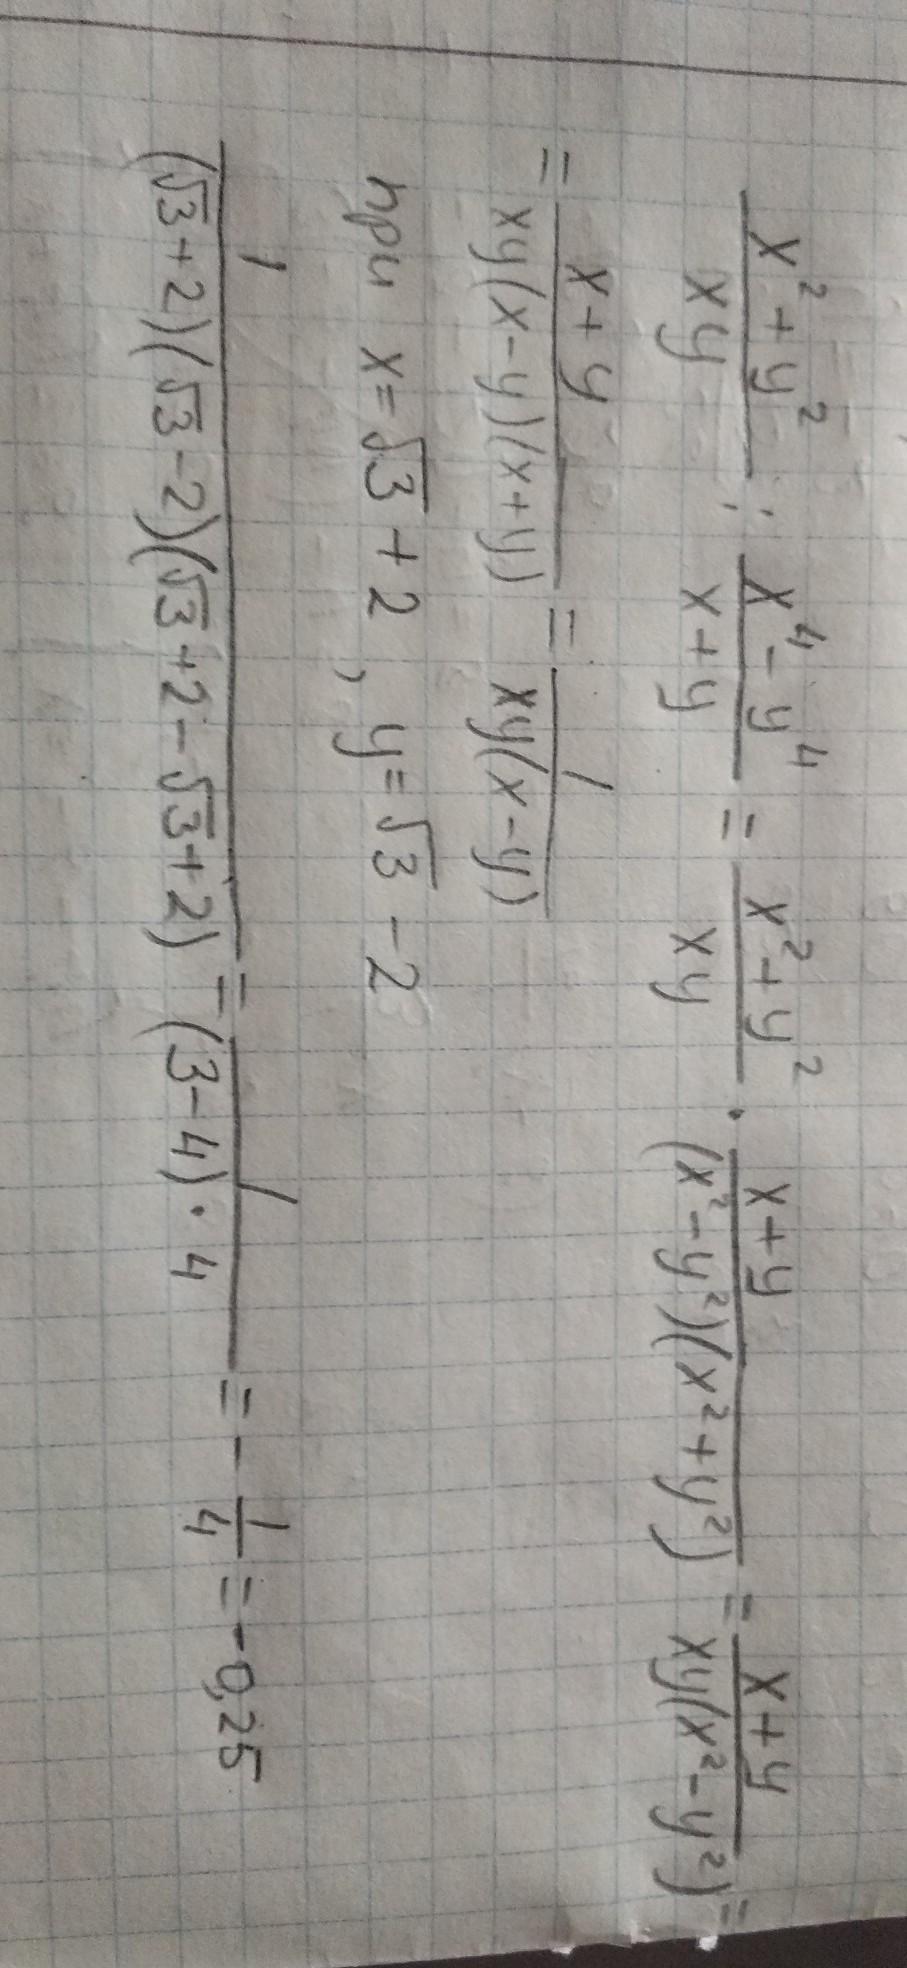 (x² + y²)/(xy) : (x⁴ - y⁴)/(x + y) = (x² + y²)/(xy) · (x + y)/((x² - y²)(x² + y²)) = (x + y)/(xy(x² - y²)) =
= (x + y)/(xy(x - y)(x + y)) = 1/(xy(x - y))
при x = √3 + 2, y = √3 - 2
1/((√3 + 2)(√3 - 2)(√3 + 2 - √3 + 2)) = 1/((3 - 4) · 4) = - 1/4 = -0,25